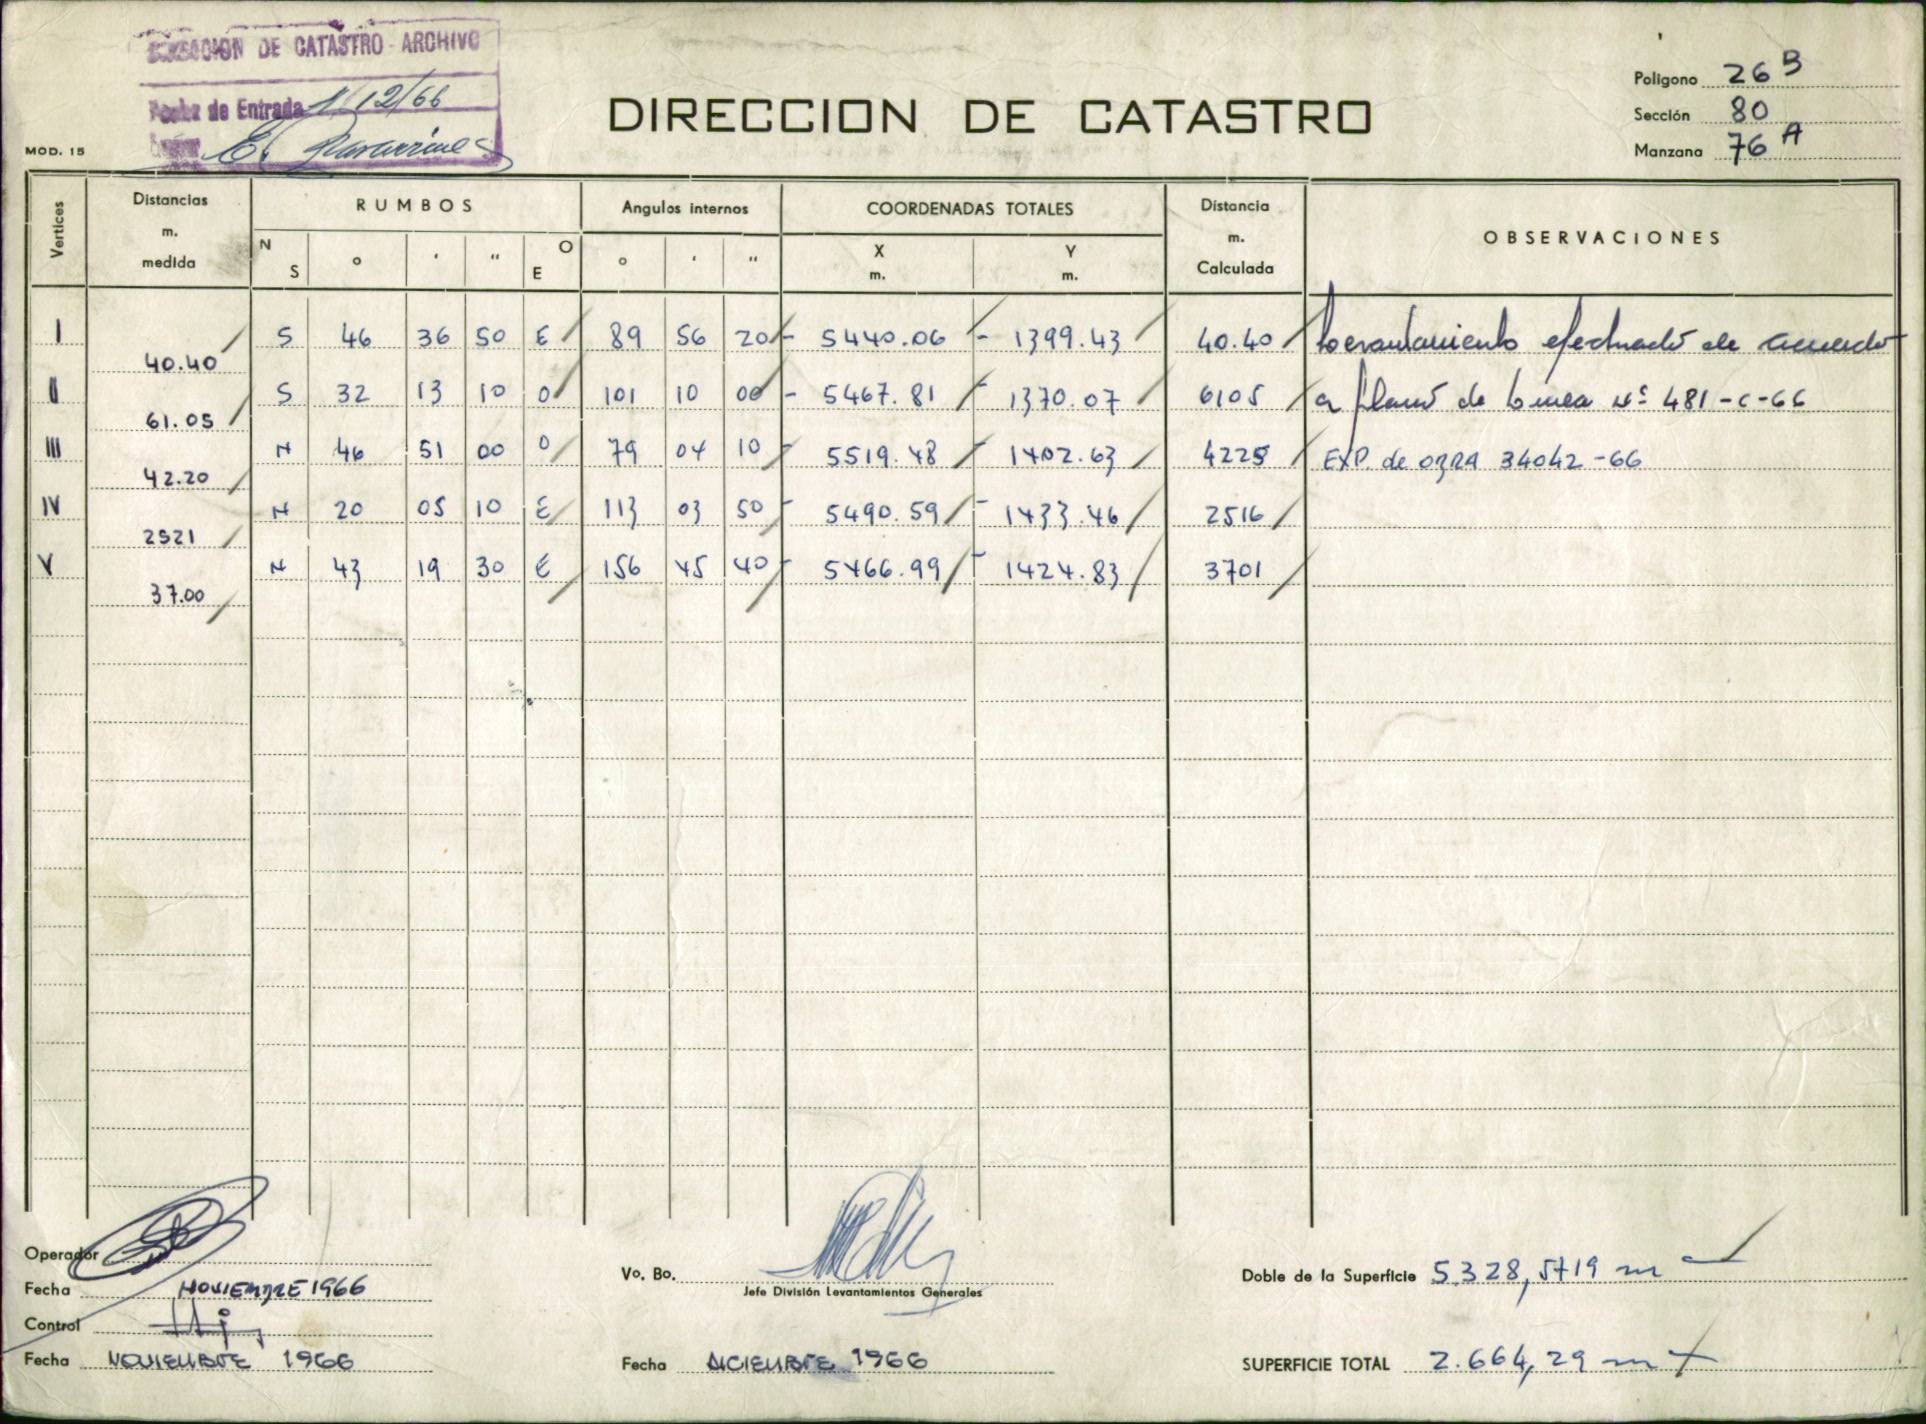 DIRECCION DE CATASTRO - ARCHIVO
Fecha de Entrada 1/12/66
MOD. 15
DIRECCION DE CATASTRO
Poligono 26 B
Sección 80
Manzana 76 A
Vertices Distancias m. medida RUMBOS Angulos internos COORDENADAS TOTALES Distancia m. Calculada OBSERVACIONES
N S ° ' " O E ° ' " X m. Y m.
I S 46 36 50 E 89 56 20 - 5440.06 - 1399.43 40.40 Levantamiento efectuado de acuerdo
40.40
II S 32 13 10 O 101 10 00 - 5467.81 - 1370.07 6105 a plano de linea Nº 481-C-66
61.05
III N 46 51 00 O 79 04 10 - 5519.48 - 1402.63 4225 EXP. de OBRA 34042-66
42.20
IV N 20 05 10 E 113 03 50 - 5490.59 - 1433.46 2516
2521
V N 43 19 30 E 156 45 40 - 5466.99 - 1424.83 3701
37.00
Operador
Fecha NOVIEMBRE 1966
Control
Fecha NOVIEMBRE 1966
Vo. Bo.
Jefe División Levantamientos Generales
Fecha DICIEMBRE 1966
Doble de la Superficie 5.328,5719 m
SUPERFICIE TOTAL 2.664,29 m